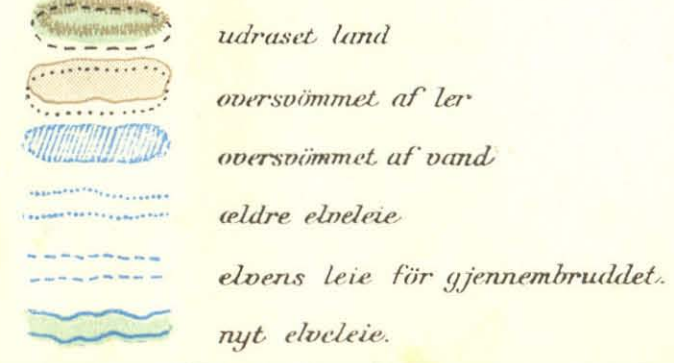 udraset land
oversvömmet af ler
oversvömmet af vand
ældre elveleie
elvens leie för gjennembruddet.
nyt elveleie.